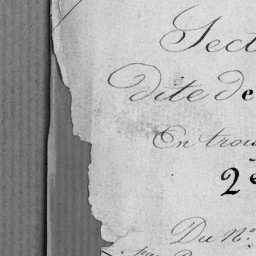 Sect
dite de
En trou
2e
Du N.º